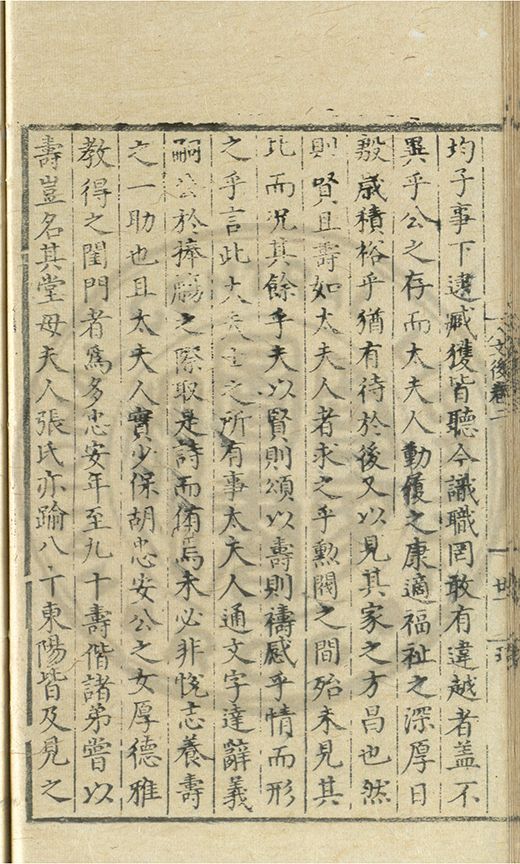 文後卷二
廿
均子事下逮臧獲皆聽令識職罔敢有違越者蓋不
異乎公之存而太夫人動履之康適福祉之深厚日
殷歲積裕乎猶有待於後又以見其家之方昌也然
則賢且壽如太夫人者求之乎勳閥之間殆未見其
比而況其餘乎夫以賢則頌以壽則禱感乎情而形
之乎言此大夫士之所有事太夫人通文字達辭義
嗣公於捧觴之際取是詩而侑焉未必非悅志養壽
之一助也且太夫人實少保胡忠安公之女厚德雅
教得之閨門者為多忠安年至九十壽偕諸弟嘗以
壽豈名其堂母夫人張氏亦踰八十東陽皆及見之